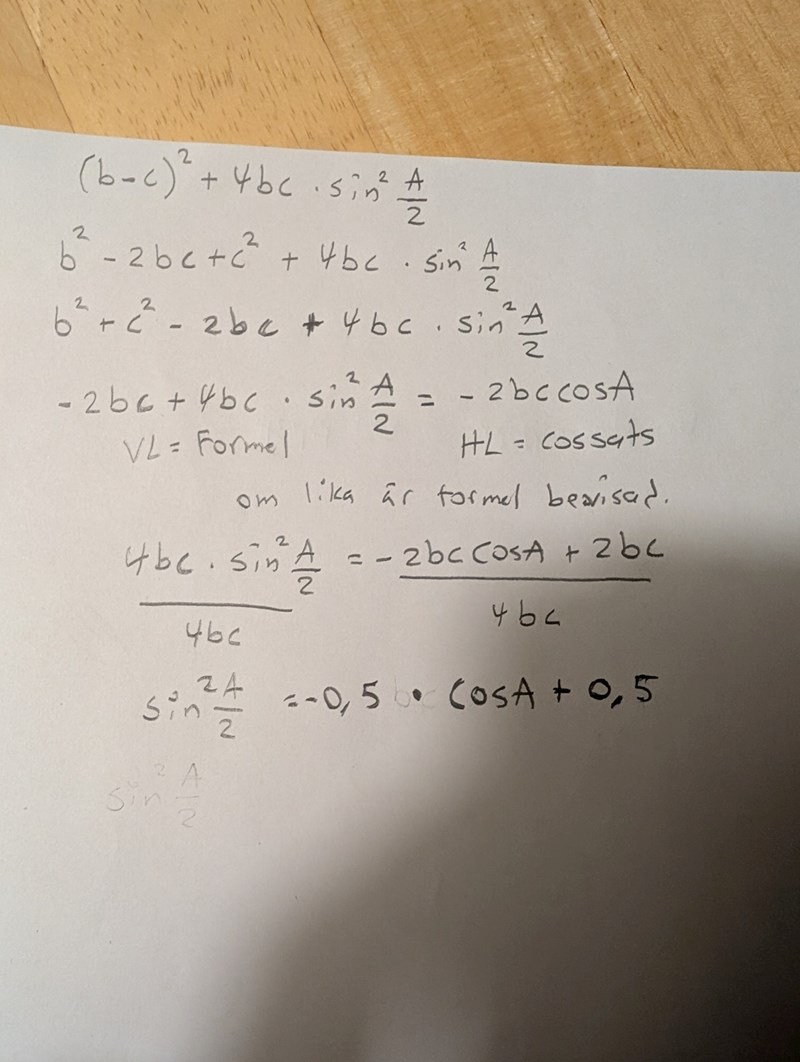 (b-c)² + 4bc · sin² A/2
b² - 2bc + c² + 4bc · sin² A/2
b² + c² - 2bc + 4bc · sin² A/2
-2bc + 4bc · sin² A/2 = -2bccosA
VL = Formel HL = cossats
om lika är formel bevisad.
4bc · sin² A/2 / 4bc = -2bc cosA + 2bc / 4bc
sin² A/2 = -0,5 · cosA + 0,5
sin² A/2